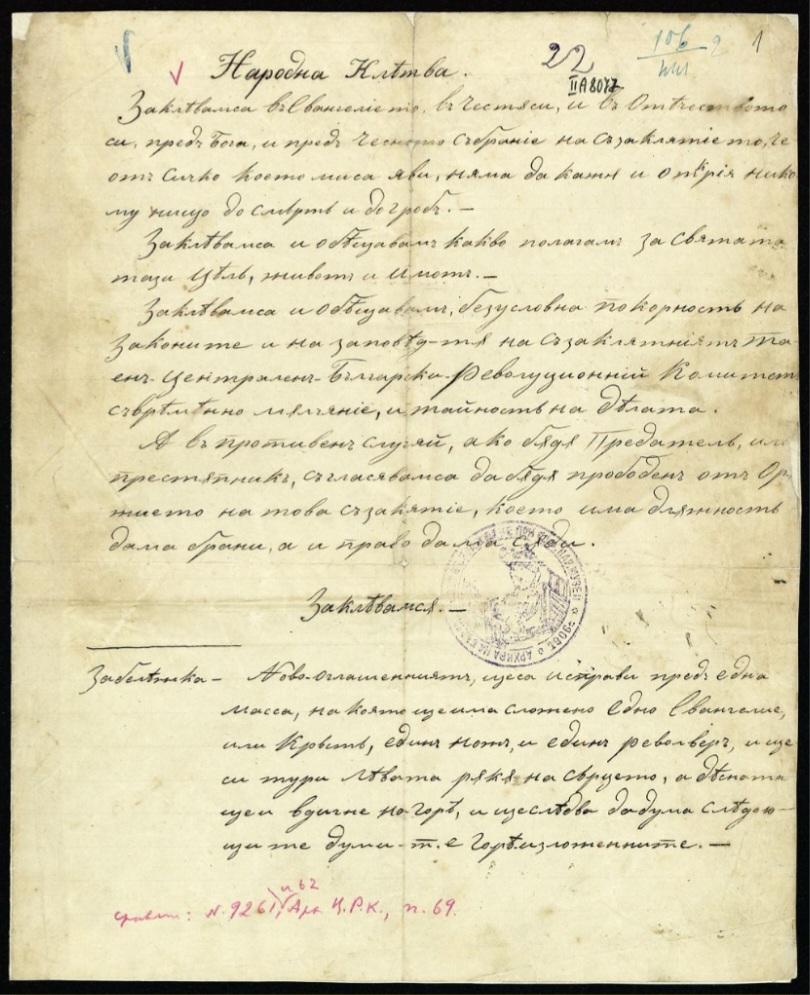 22
106 2
1
IIA8047
Народна Клѣтва.
Заклѣвамса въ Евангелието, въ честяси, и въ Отечеството
си, предъ Бога, и предъ честното събрание на съзаклятието, че
отъ сичко което миса яви, няма да кажя и открія нико
му нищо до смърть и до гробъ. —
Заклѣвамса и обѣщавамъ какво полагамъ за святата
тази цѣль, животъ и имотъ. —
Заклѣвамса и обѣщавамъ, безусловна покорность на
Законите и на заповѣд-тя на съзаклятніятъ та-
енъ-Централенъ-Български-Революционній Комитетъ
съврѣменно мълчаніе, и тайность на дѣлата.
А въ противенъ случай, ако бядя Предатель, или
престяпникъ, съгласявамса да бядя прободенъ отъ Ор
жието на това съзакятіе, което има длъжность
дама брани, а и право дама сяди.
Заклѣвамся. —
Забелѣжка — Ново-оглашенниятъ, щеса исправи предъ една
масса, на която ще има сложено едно Евангелие,
или Крьстъ, единъ ножъ, и единъ револверъ, и ще
си тури лѣвата ряка на сърцето, а дѣсната
ще и вдигне на горѣ, и щеслѣдва да дума слѣдою-
щи те думи - т. е горѣизложенните. —
и 62
сравни: N. 9261, Арх Ц.Р.К., п. 69.